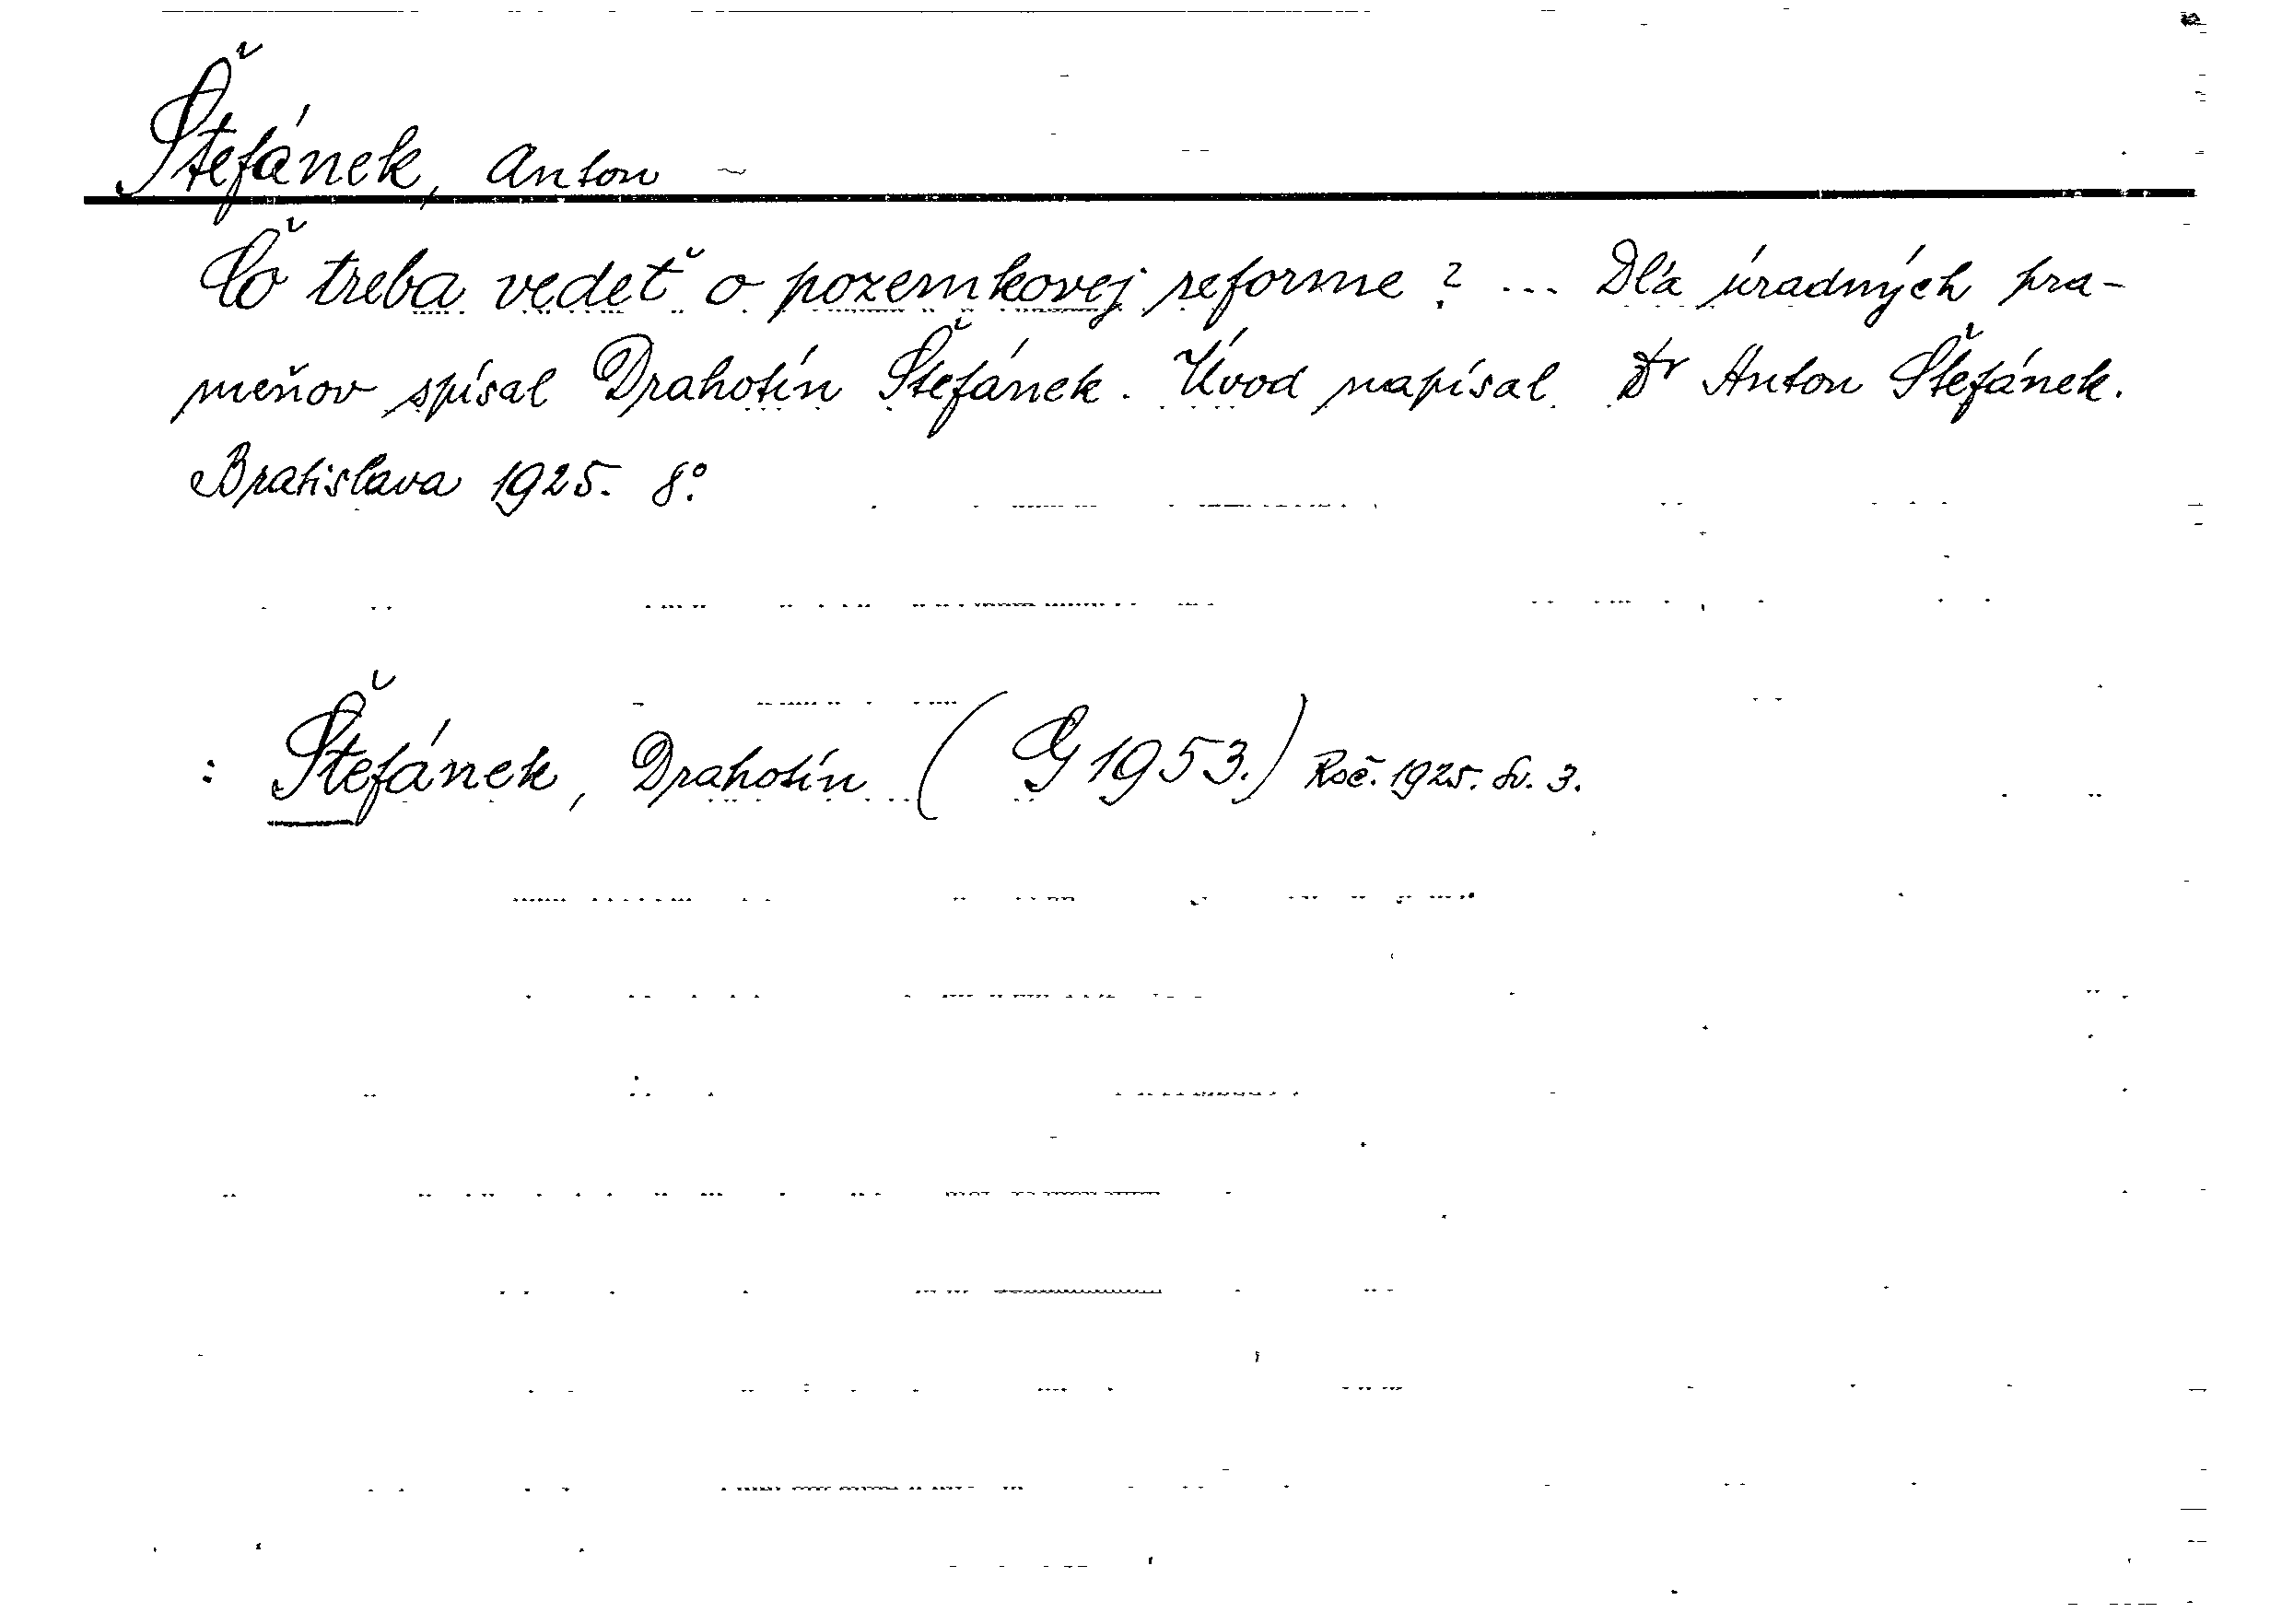 Štefánek, Anton
Čo treba vedeť o pozemkovej reforme? ... Dľa úradných pra-
meňov spísal Drahotín Štefánek. Úvod napísal Dr Anton Štefánek.
Bratislava 1925. 8°.
: Štefánek, Drahotín (G 1953.) Roč. 1925. Sv. 3.